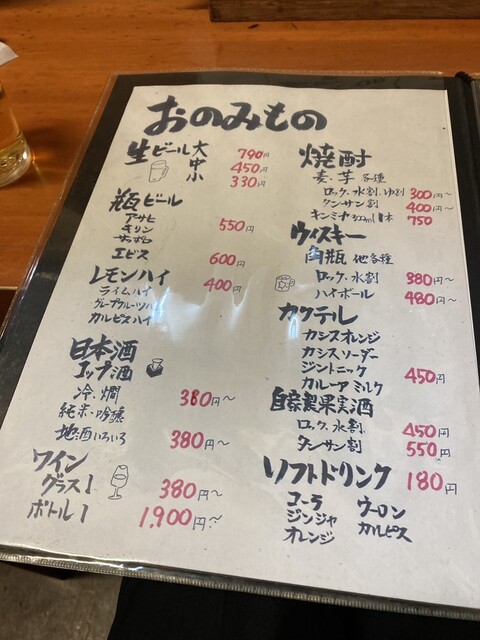 おのみもの
生ビール 大 790円
中 450円
小 330円
瓶ビール
アサヒ
キリン 550円
サッポロ
エビス 600円
レモンハイ 400円
ライムハイ
グレープフルーツハイ
カルピスハイ
日本酒
コップ酒
冷・燗 380円～
純米・吟醸
地酒いろいろ 380円～
ワイン
グラス1 380円～
ボトル1 1,900円～
焼酎
麦・芋 各種
ロック、水割、ゆ割 300円～
タンサン割 400円～
キンミヤ300ml 1本 750
ウィスキー
角瓶 他各種
ロック、水割 380円～
ハイボール 480円～
カクテル
カシスオレンジ
カシスソーダー
ジントニック 450円
カルーアミルク
自家製果実酒
ロック、水割、 450円
タンサン割 550円
ソフトドリンク 180円
コーラ ウーロン
ジンジャ カルピス
オレンジ